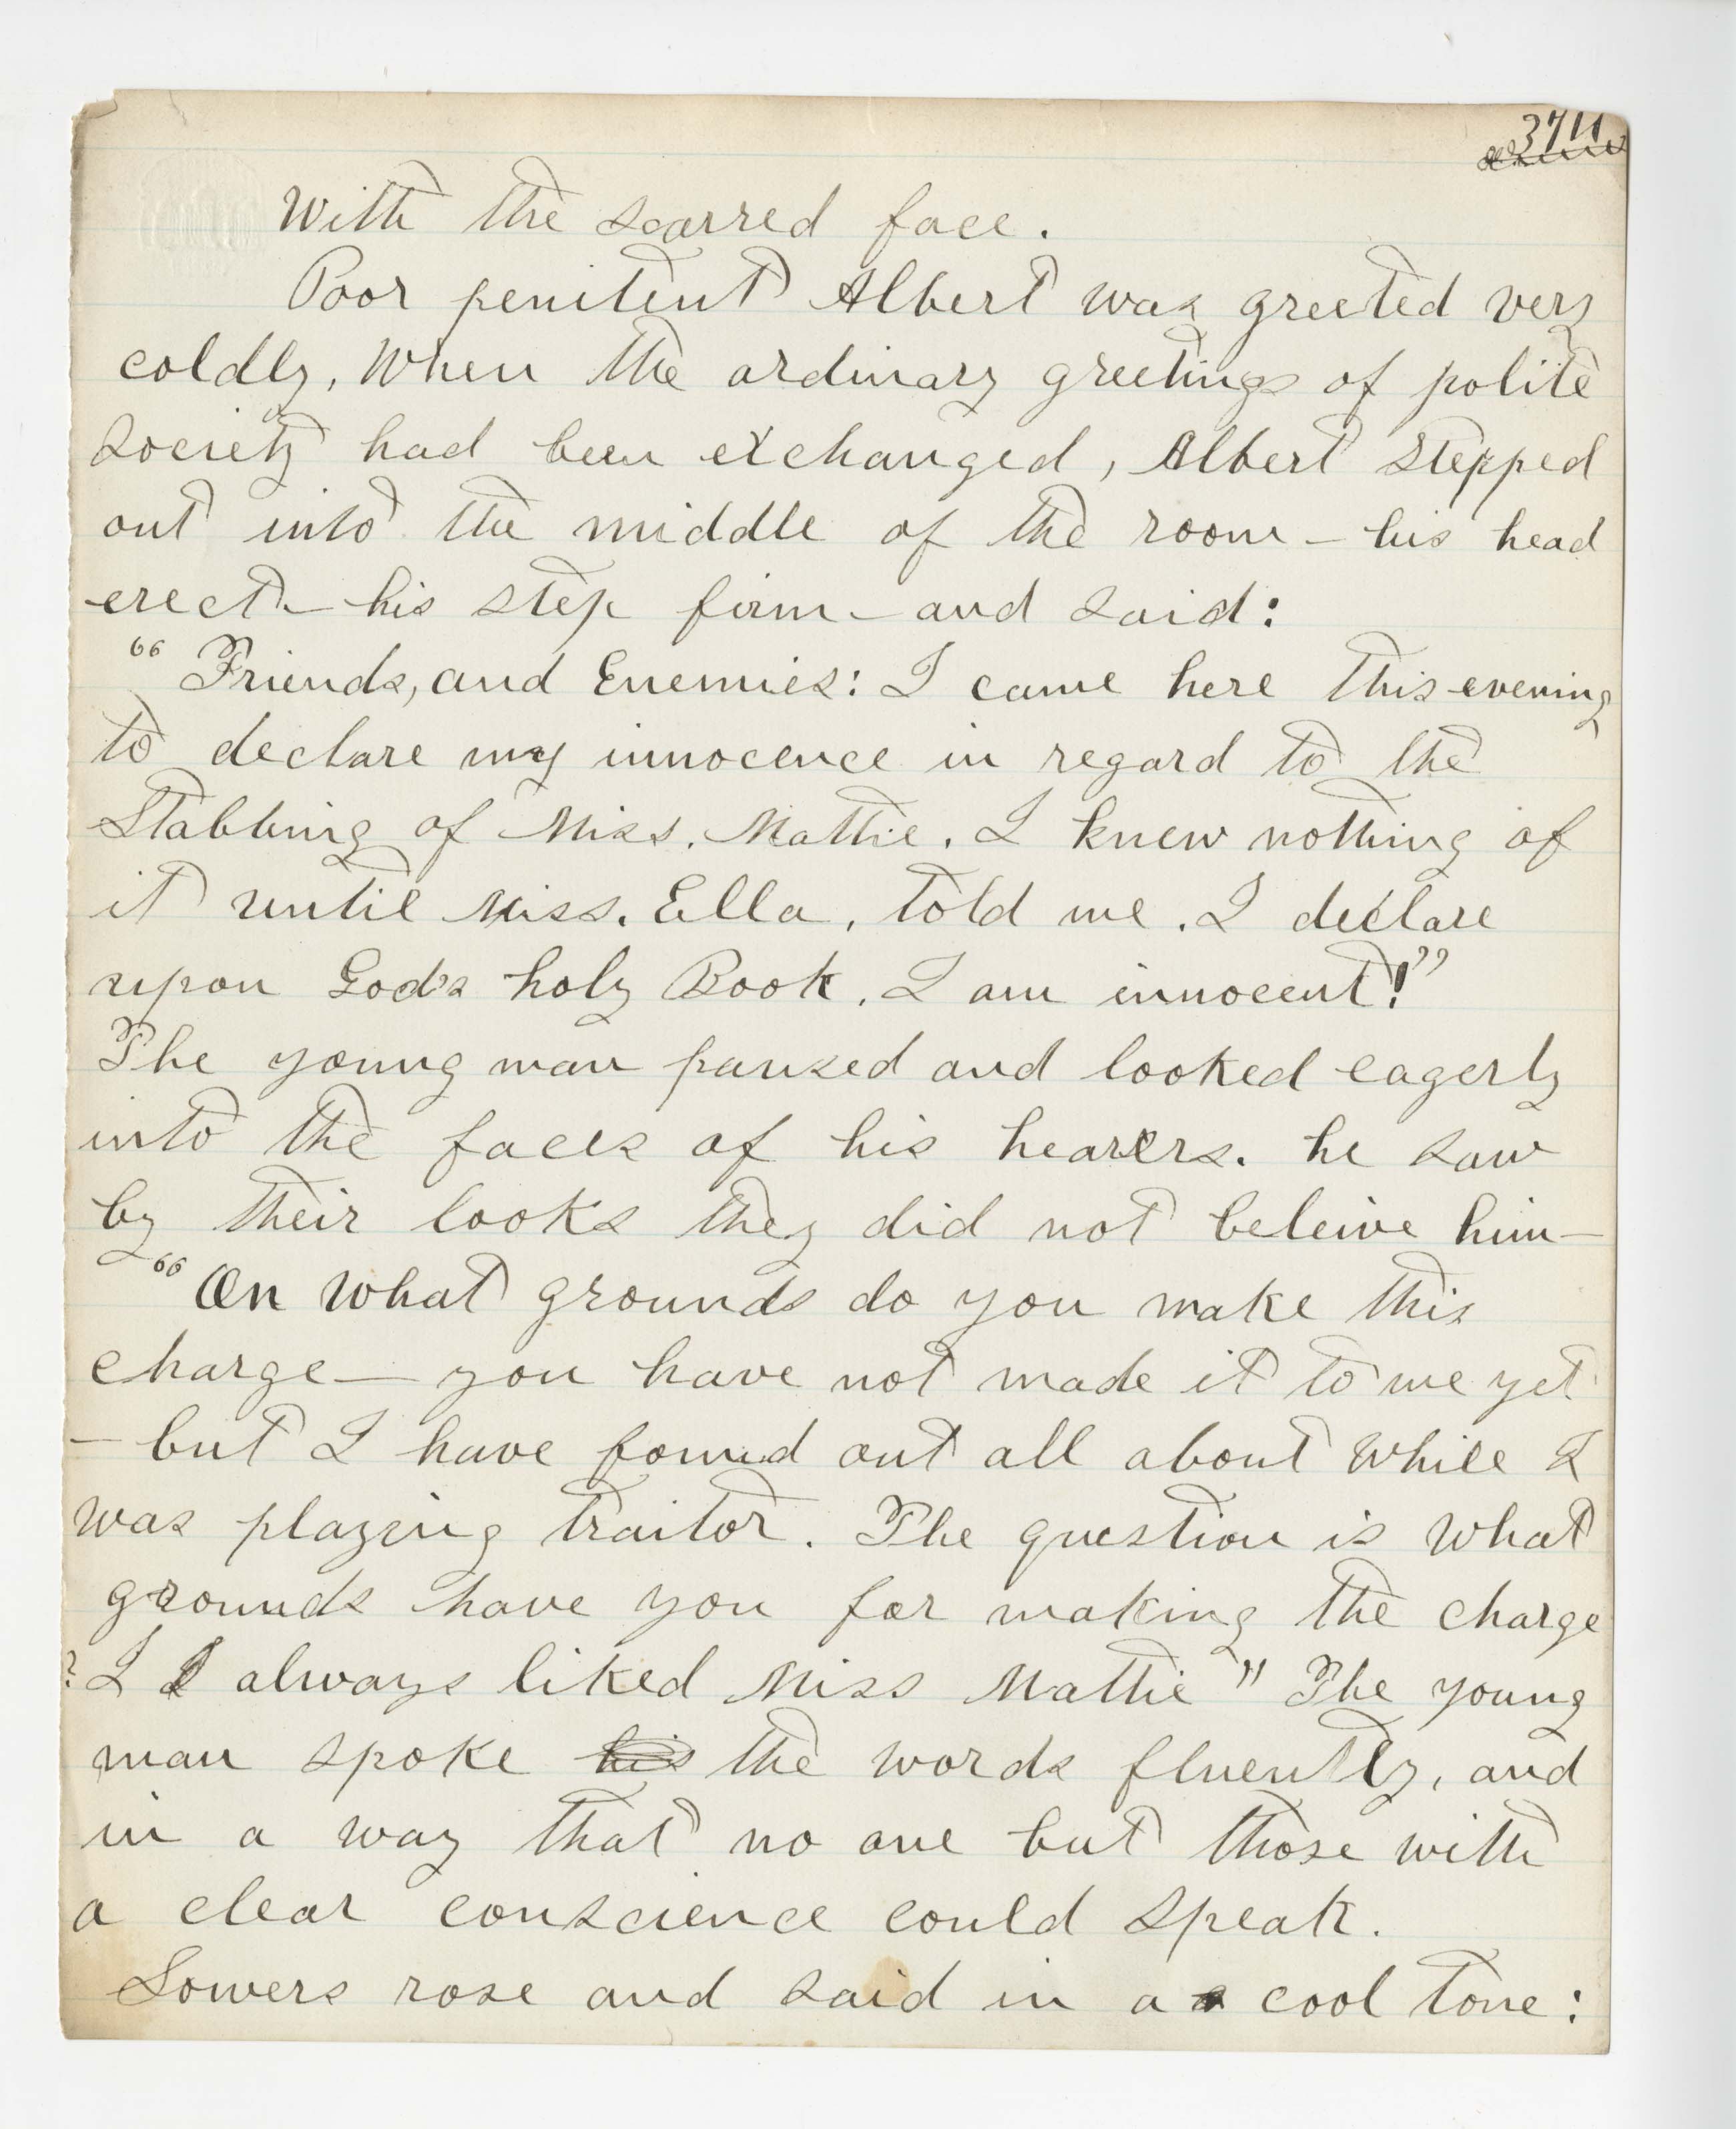 3711
With the scarred face.
Poor penitent Albert was greeted very
coldly, When the ordinary greetings of polite
society had been exchanged, Albert stepped
out into the middle of the room – his head
erect – his step firm – and said:
“Friends, and Enemies: I came here this evening
to declare my innocence in regard to the
Stabbing of Miss. Mattie. I knew nothing of
it until Miss. Ella, told me. I declare
upon God's holy Book. I am innocent!”
The young man paused and looked eagerly
into the faces of his hearers. he saw
by their looks they did not beleive him –
“On What grounds do you make this
charge – you have not made it to me yet
– but I have found out all about While I
was playing traitor. The question is What
grounds have you for making the charge
? I I always liked Miss Mattie" The young
man spoke his the words fluently, and
in a way that no one but those with
a clear conscience could speak.
Sowers rose and said in a cool tone: